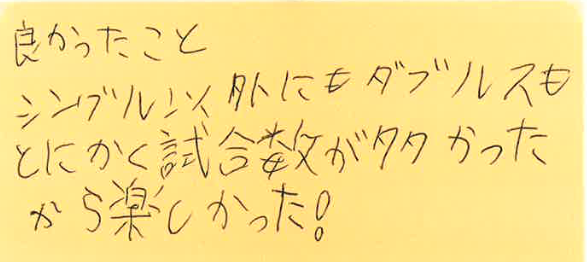 良かったこと
シングル以外にもダブルスも
とにかく試合数が多かった
から楽しかった!